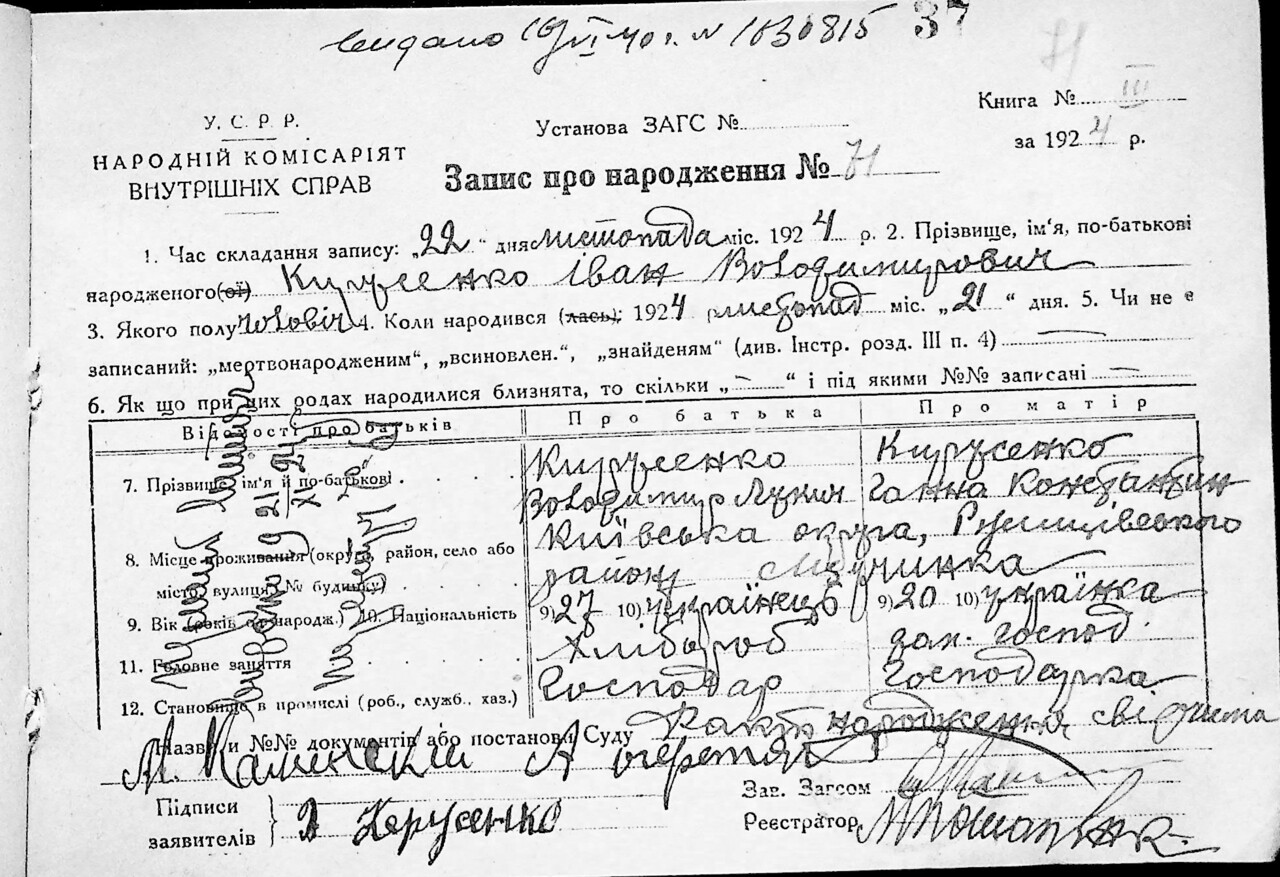 видано 19/VI 40 г. N 1030815 37
71
Книга № III
У. С. Р. Р.
Установа ЗАГС №
за 1924 р.
НАРОДНІЙ КОМІСАРІЯТ
ВНУТРІШНІХ СПРАВ
Запис про народження № 71
1. Час складання запису: „22“ дня листопада міс. 1924 р. 2. Прізвище, ім‘я, по-батькові
народженого(ої) Кирусенко Іван Володимирович
3. Якого полу чоловіч 4. Коли народився (лась): 1924 р. листопад міс. „21“ дня. 5. Чи не є
записаний: „мертвонародженим“, „всиновлен.“, „знайденям“ (див. Інстр. розд. III п. 4)
6. Як що при цих родах народилися близнята, то скільки „—“ і під якими №№ записані —
Відомості про батьків Про батька Про матір
7. Прізвище, ім‘я й по-батькові Кирусенко Кирусенко
Володимир Лукич Ганна Константин
8. Місце проживання (округа, район, село або Київська округа,
місто, вулиця, № будинку) району
9. Вік (років од народж.) 10. Національність 9) 27 10) українець 9) 20 10) українка
11. Головне заняття Хлібороб зан. господ.
12. Становище в промислі (роб., служб., хаз.) Господар Господарка
Назви и №№ документів або постанови Суду Факт народження
М. Каминский А
Підписи
заявителів } Я Керусенко
Зав. Загсом
Реєстратор